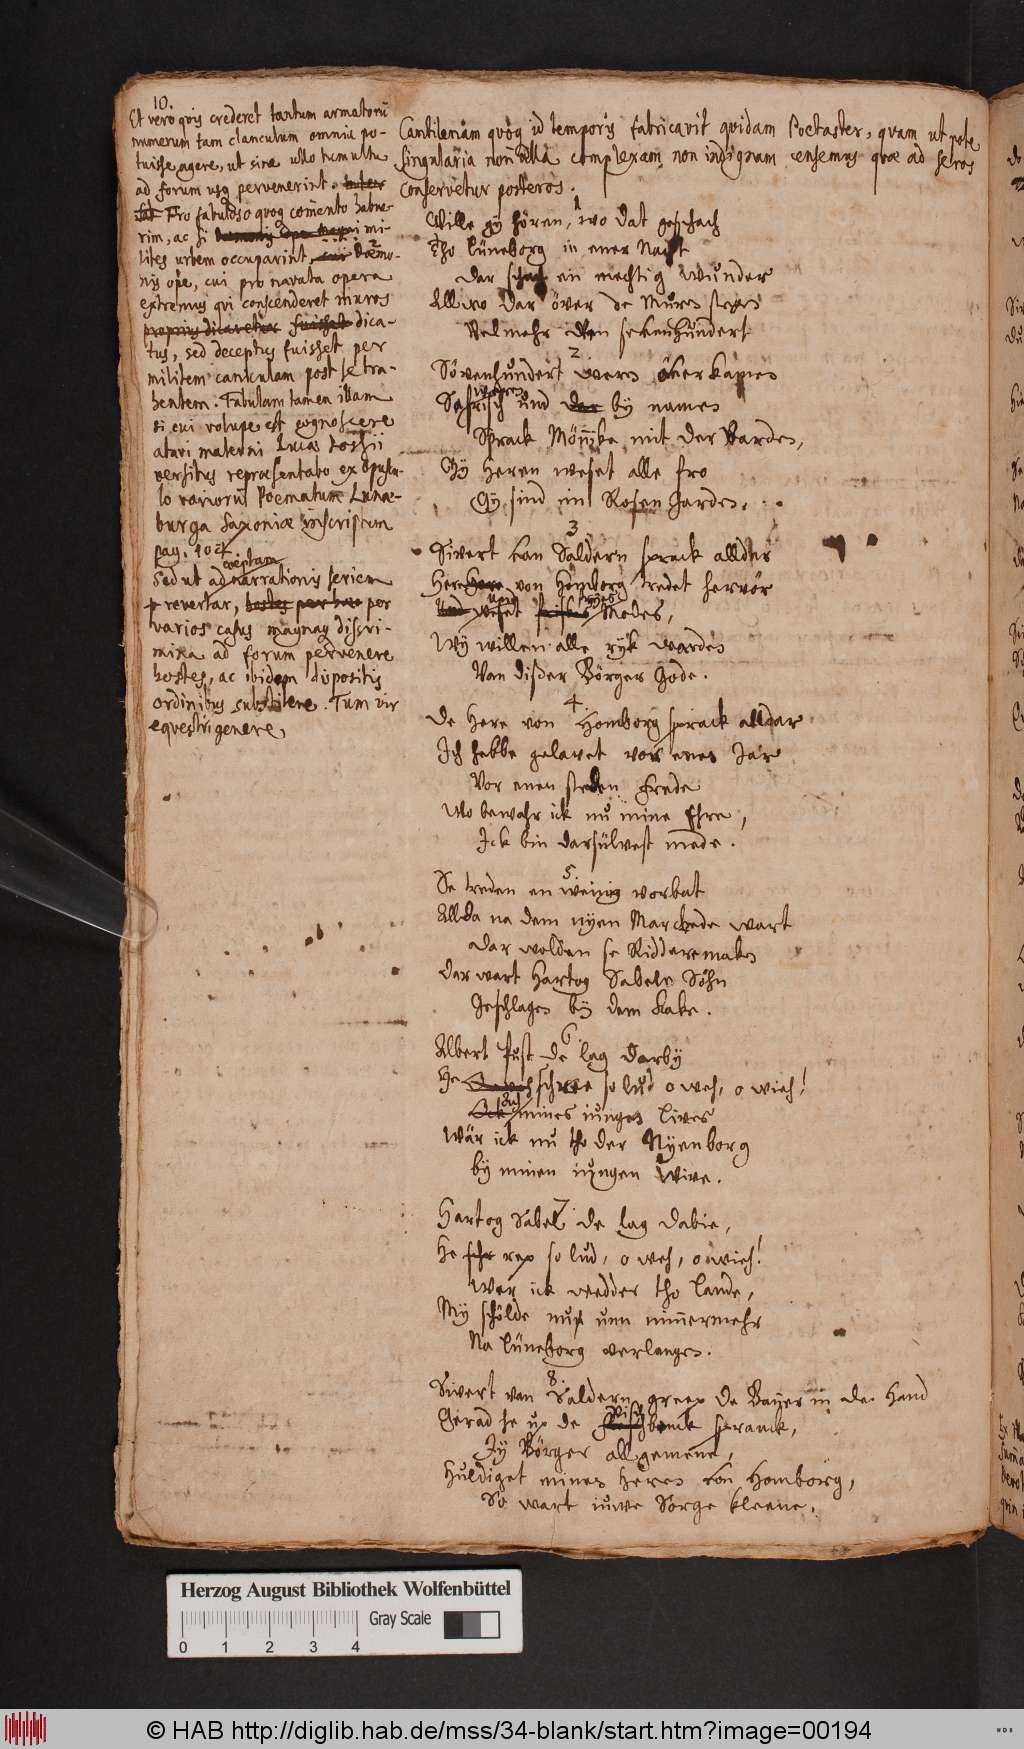 10.
Et vero qvis crederet tantum armatorū
numerum tam clanculum omnia po-
tuisse agere, ut sine ullo tumultu
ad forum usq pervenerint.
Pro fabuloso qvoq comento habue-
rim, ac si mi-
lites urbem occuparint, Dæmo-
nis ope, cui pro navata opera
extremus qui conscenderet muros
dica-
tus, sed deceptus fuisset per
militem caniculam post se tra-
hentem. Fabulam tamen illam
si cui volupe est cognoscere
atavi materni Lucæ Lossii
versibus repræsentabo ex Opuscu-
lo variorū Poematum Lunæ-
burga Saxoniæ inscriptum
pag. 402.
Sed ut ad cœptam narrationis seriem
revertar, per
varios casus magnaq discri-
mina ad forum pervenere
hostes, ac ibidem dispositis
ordinibus substitere. Tum vir
eqvestri genere
Cantilenam qvoq id temporis fabricavit qvidam Poetaster, qvam ut pote
singularia nonnulla complexam non indignam censemus quæ ad seros
conservetur posteros.
1
Wille gy hören, wo dat geschach
Tho Lüneborg in ener Nacht
Dar schach ein mechtig wunder
Allwo dar över de Muren stegen
Velmehr den sekenhundert
2.
Sövenhundert weren över kamen
Sassisch weren und by namen
Sprack Mönnike mit der Barden,
Gy Heren weset alle fro
Gy sind im Rosen Garden.
3
Sivert van Saldern sprack alldar
Here von Homborg tredet hervör
weset Modes,
Wy willen alle ryk warden
Van dißer Börger Gode.
4.
De Here von Homborg sprack alldar
Ich hebbe gelavet vor enes Jar
Vor enen steden Frede
Wo bewahr ick nu mine Ehre,
Ick bin darsülvest mede.
5.
Se treden en weinig vorbat
Allda na dem nyen Marckede wart
Dar wolden se Riddere maken
Dar wart Hartog Sabels Söhn
Geschlagen by dem Kake.
6.
Albert Pust de lag darby
He schree so lud o weh, o wieh!
Och mines iungen Lives
Wär ick nu tho der Nyenborg
by minen iungen Wive.
7.
Hartog Sabel de lag dabie,
He rep so lud, o weh, o wieh!
Wer ick wedder tho Lande,
My schölde nu un nimmermehr
Na Lüneborg verlangen.
8.
Sivert van Saldern greep de Bayer in de Hand
Gerad he up de Vischbanck spranck,
Jy Börger all gemene,
Huldiget minen Heren von Homborg,
So wart iuwe Sorge kleene.
Herzog August Bibliothek Wolfenbüttel
Gray Scale
0 1 2 3 4
© HAB http://diglib.hab.de/mss/34-blank/start.htm?image=00194